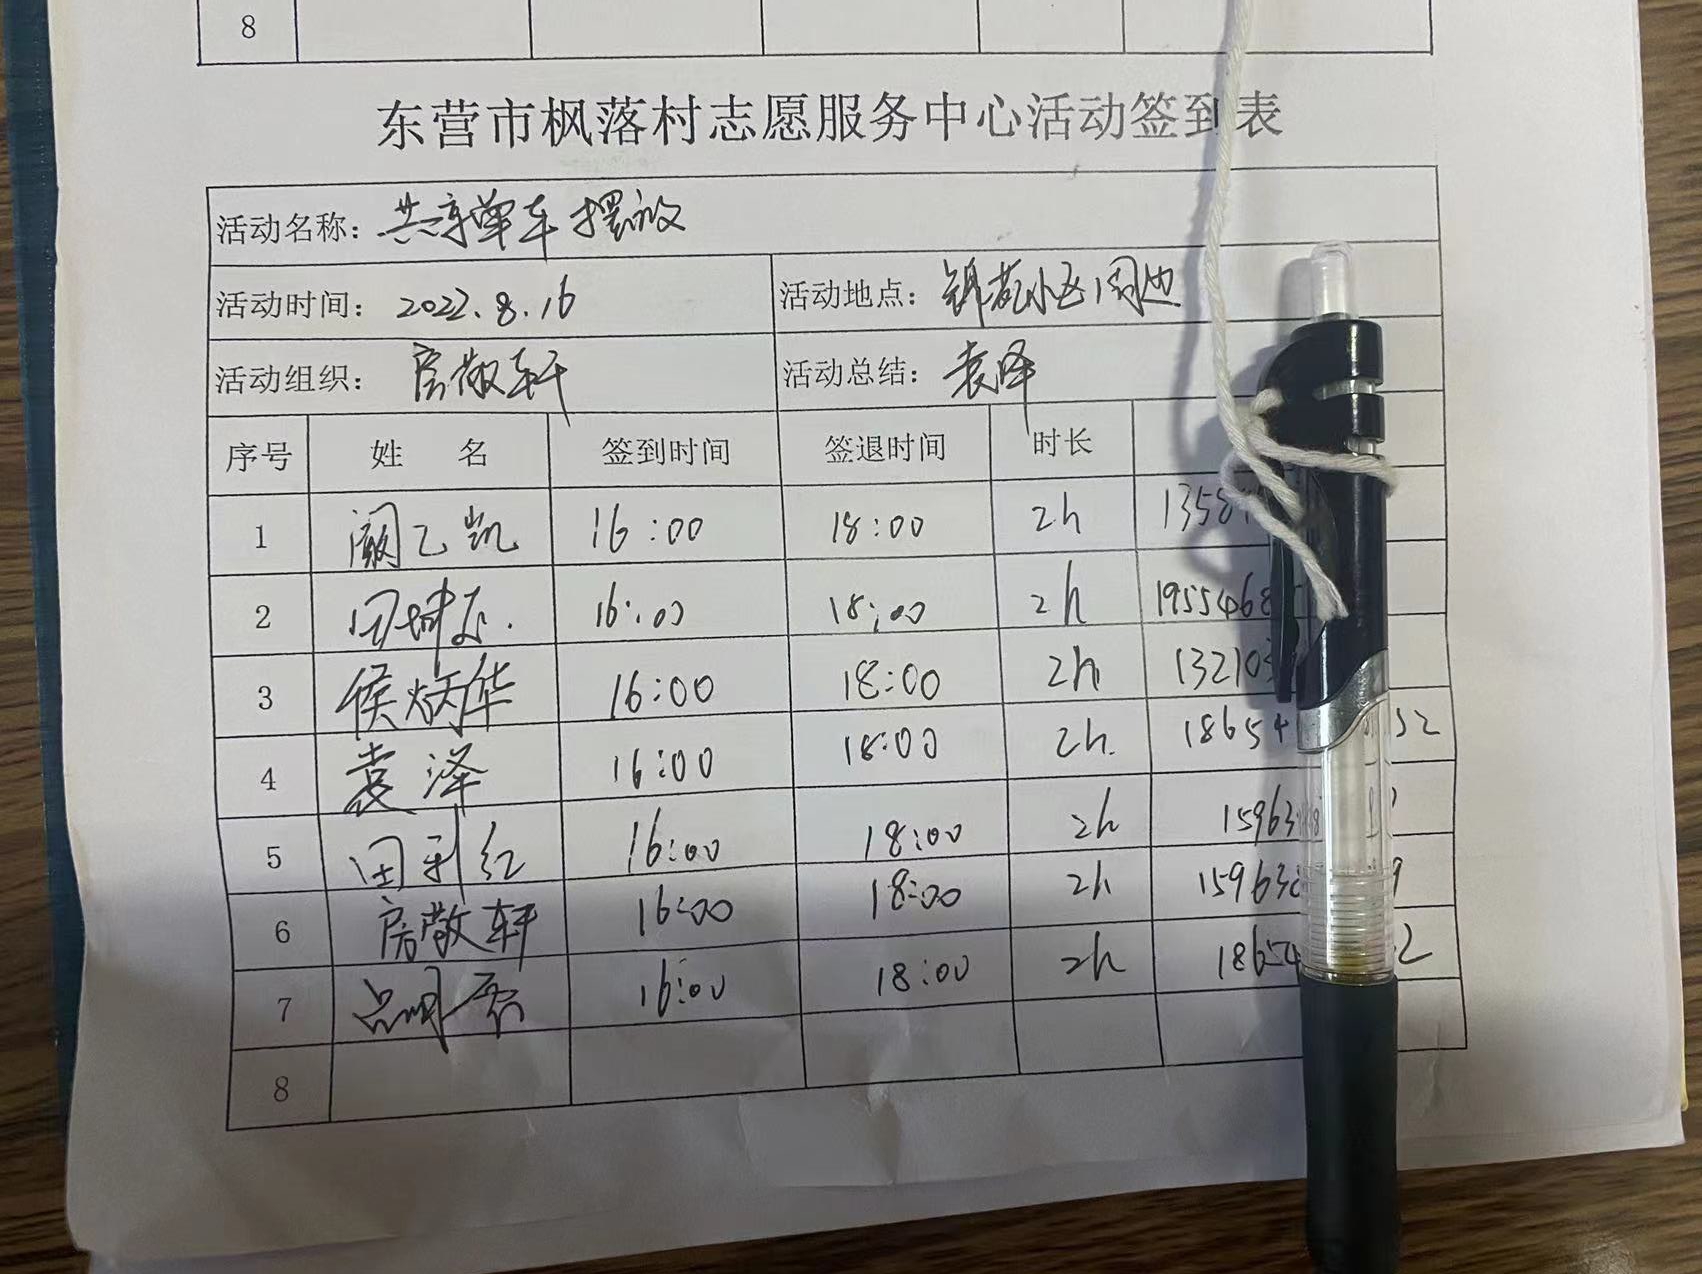 8
东营市枫落村志愿服务中心活动签到表
活动名称：共享单车摆放
活动时间：2022.8.16 活动地点：锦苑小区周边
活动组织：房敬轩 活动总结：袁泽
序号 姓 名 签到时间 签退时间 时长
1 阚乙凯 16:00 18:00 2h 1358
2 16:00 18:00 2h 1955468
3 侯炳华 16:00 18:00 2h 132105
4 袁泽 16:00 18:00 2h. 18654 32
5 田利红 16:00 18:00 2h 15963
6 房敬轩 16:00 18:00 2h 15963 9
7 16:00 18:00 2h 18654 2
8